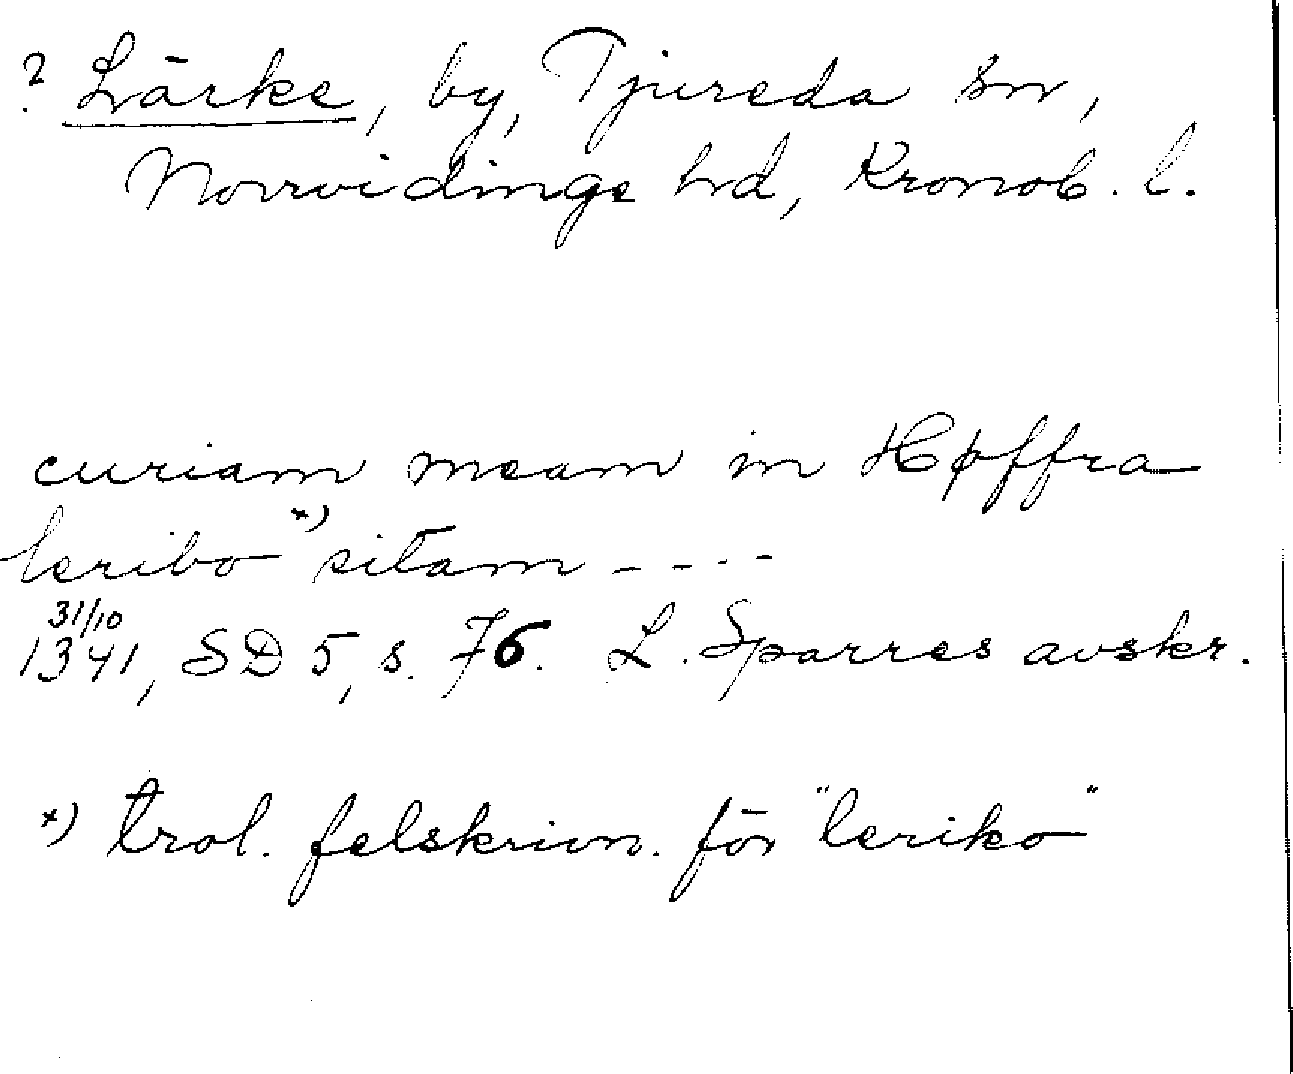 ? Lärke, by, Tjureda sn,
Norrvidinge hd, Kronob. l.
curiam meam in Høffra
leribo *) sitam - - - -
31/10
1341, SD 5, s. 76. L. Sparres avskr.
*) trol. felskrivn. för "leriko"